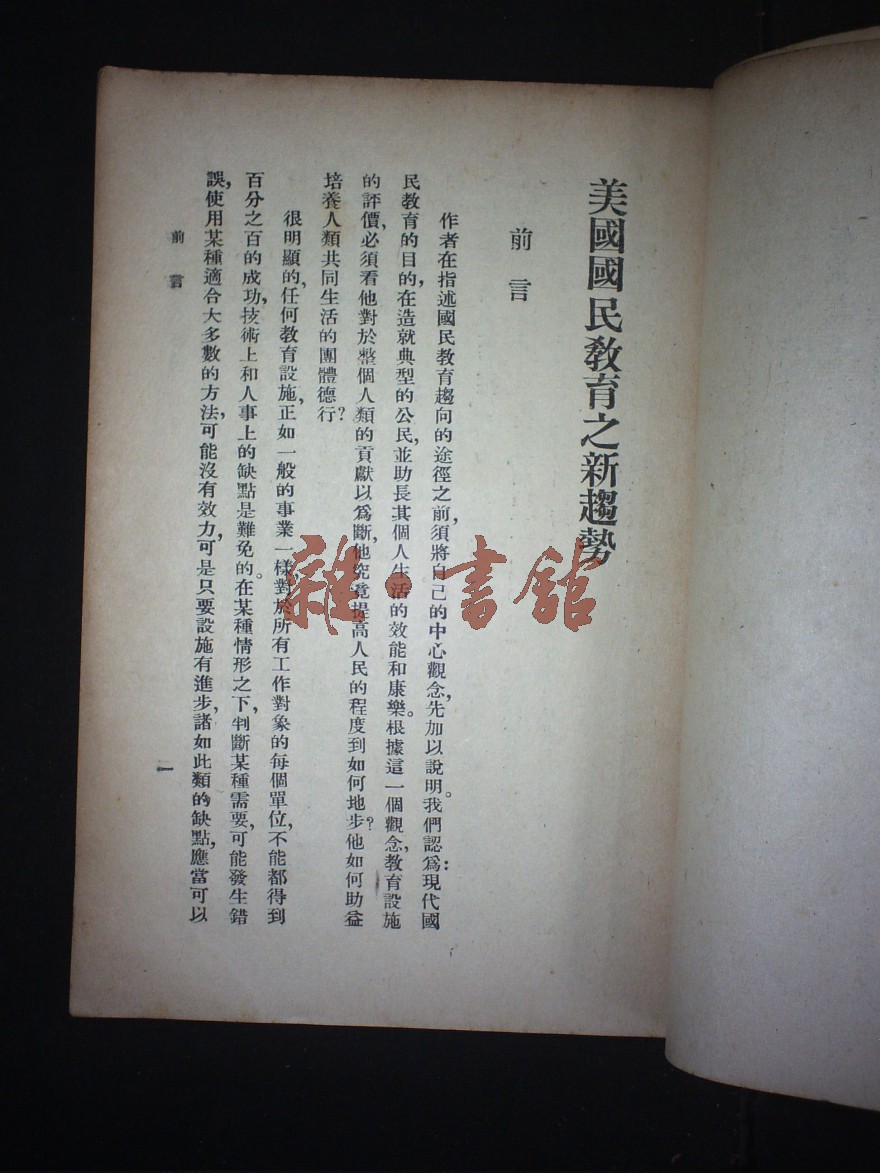 美國國民教育之新趨勢
前言
作者在指述國民教育趨向的途徑之前，須將自己的中心觀念，先加以說明。我們認爲：現代國
民教育的目的，在造就典型的公民，並助長其個人生活的效能和康樂。根據這一個觀念，教育設施
的評價，必須看他對於整個人類的貢獻以爲斷，他究竟提高人民的程度到如何地步？他如何助益
培養人類共同生活的團體德行？
很明顯的，任何教育設施，正如一般的事業一樣，對於所有工作對象的每個單位，不能都得到
百分之百的成功，技術上和人事上的缺點是難免的。在某種情形之下，判斷某種需要，可能發生錯
誤，使用某種適合大多數的方法，可能沒有效力，可是只要設施有進步，諸如此類的缺點，應當可以
前言
一
雜·書館